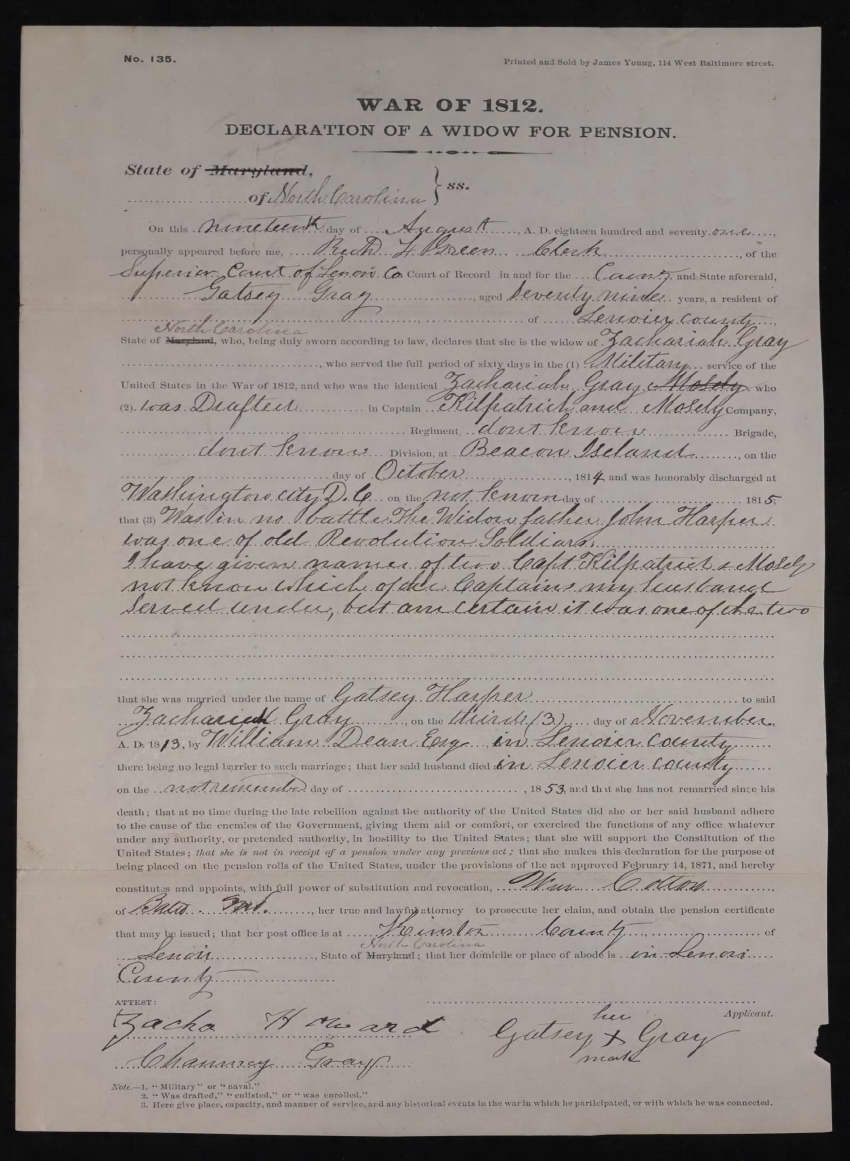 No. 135.
Printed and Sold by James Young, 114 West Baltimore street.
WAR OF 1812.
DECLARATION OF A WIDOW FOR PENSION.
State of Maryland, } ss.
of North Carolina
On this nineteenth day of August, A. D. eighteen hundred and seventy one,
personally appeared before me, Ruth F. Green Clerk, of the
Superior Court of Lenoir Co Court of Record in and for the County and State aforesaid,
Gatsey Gray, aged Seventy nine years, a resident of
of Lenoier County,
North Carolina
State of Maryland, who, being duly sworn according to law, declares that she is the widow of Zachariah Gray
, who served the full period of sixty days in the (1) Military service of the
United States in the War of 1812, and who was the identical Zachariah Gray Mosely who
(2). was Drafted in Captain Kilpatrick and Mosely Company,
Regiment, dont know Brigade,
dont know Division, at Beacon Iseland, on the
day of October, 1814 and was honorably discharged at
Washington city D. C on the not known day of 1815.
that (3) Was in no battle The Widow father John Harper
was one of old Revolution Soldiars.
I have given names of two Capt Kilpatrick & Mosely
not know which of all Captains my husband
Served under, but am certain it was one of the two
that she was married under the name of Gatsey Harper to said
Zachariah Gray, on the third (3) day of November,
A. D. 1813, by William Dean Esq in Lenoier County
there being no legal barrier to such marriage; that her said husband died in Lenoier County
on the not remembred day of , 1853, and that she has not remarried since his
death; that at no time during the late rebellion against the authority of the United States did she or her said husband adhere
to the cause of the enemies of the Government, giving them aid or comfort, or exercised the functions of any office whatever
under any authority, or pretended authority, in hostility to the United States; that she will support the Constitution of the
United States; that she is not in receipt of a pension under any previous act; that she makes this declaration for the purpose of
being placed on the pension rolls of the United States, under the provisions of the act approved February 14, 1871, and hereby
constitutes and appoints, with full power of substitution and revocation, Wm Cotton,
of Balto Md., her true and lawful attorney to prosecute her claim, and obtain the pension certificate
that may be issued; that her post office is at Kinston County of
North Carolina
Lenoir, State of Maryland; that her domicile or place of abode is in Lenoir
County
ATTEST:
Applicant.
Zacho Howard
her
Gatsey X Gray
mark
Chauncey Gray
Note.—1. "Military" or "naval."
2. "Was drafted," "enlisted," or "was enrolled."
3. Here give place, capacity, and manner of service, and any historical events in the war in which he participated, or with which he was connected.